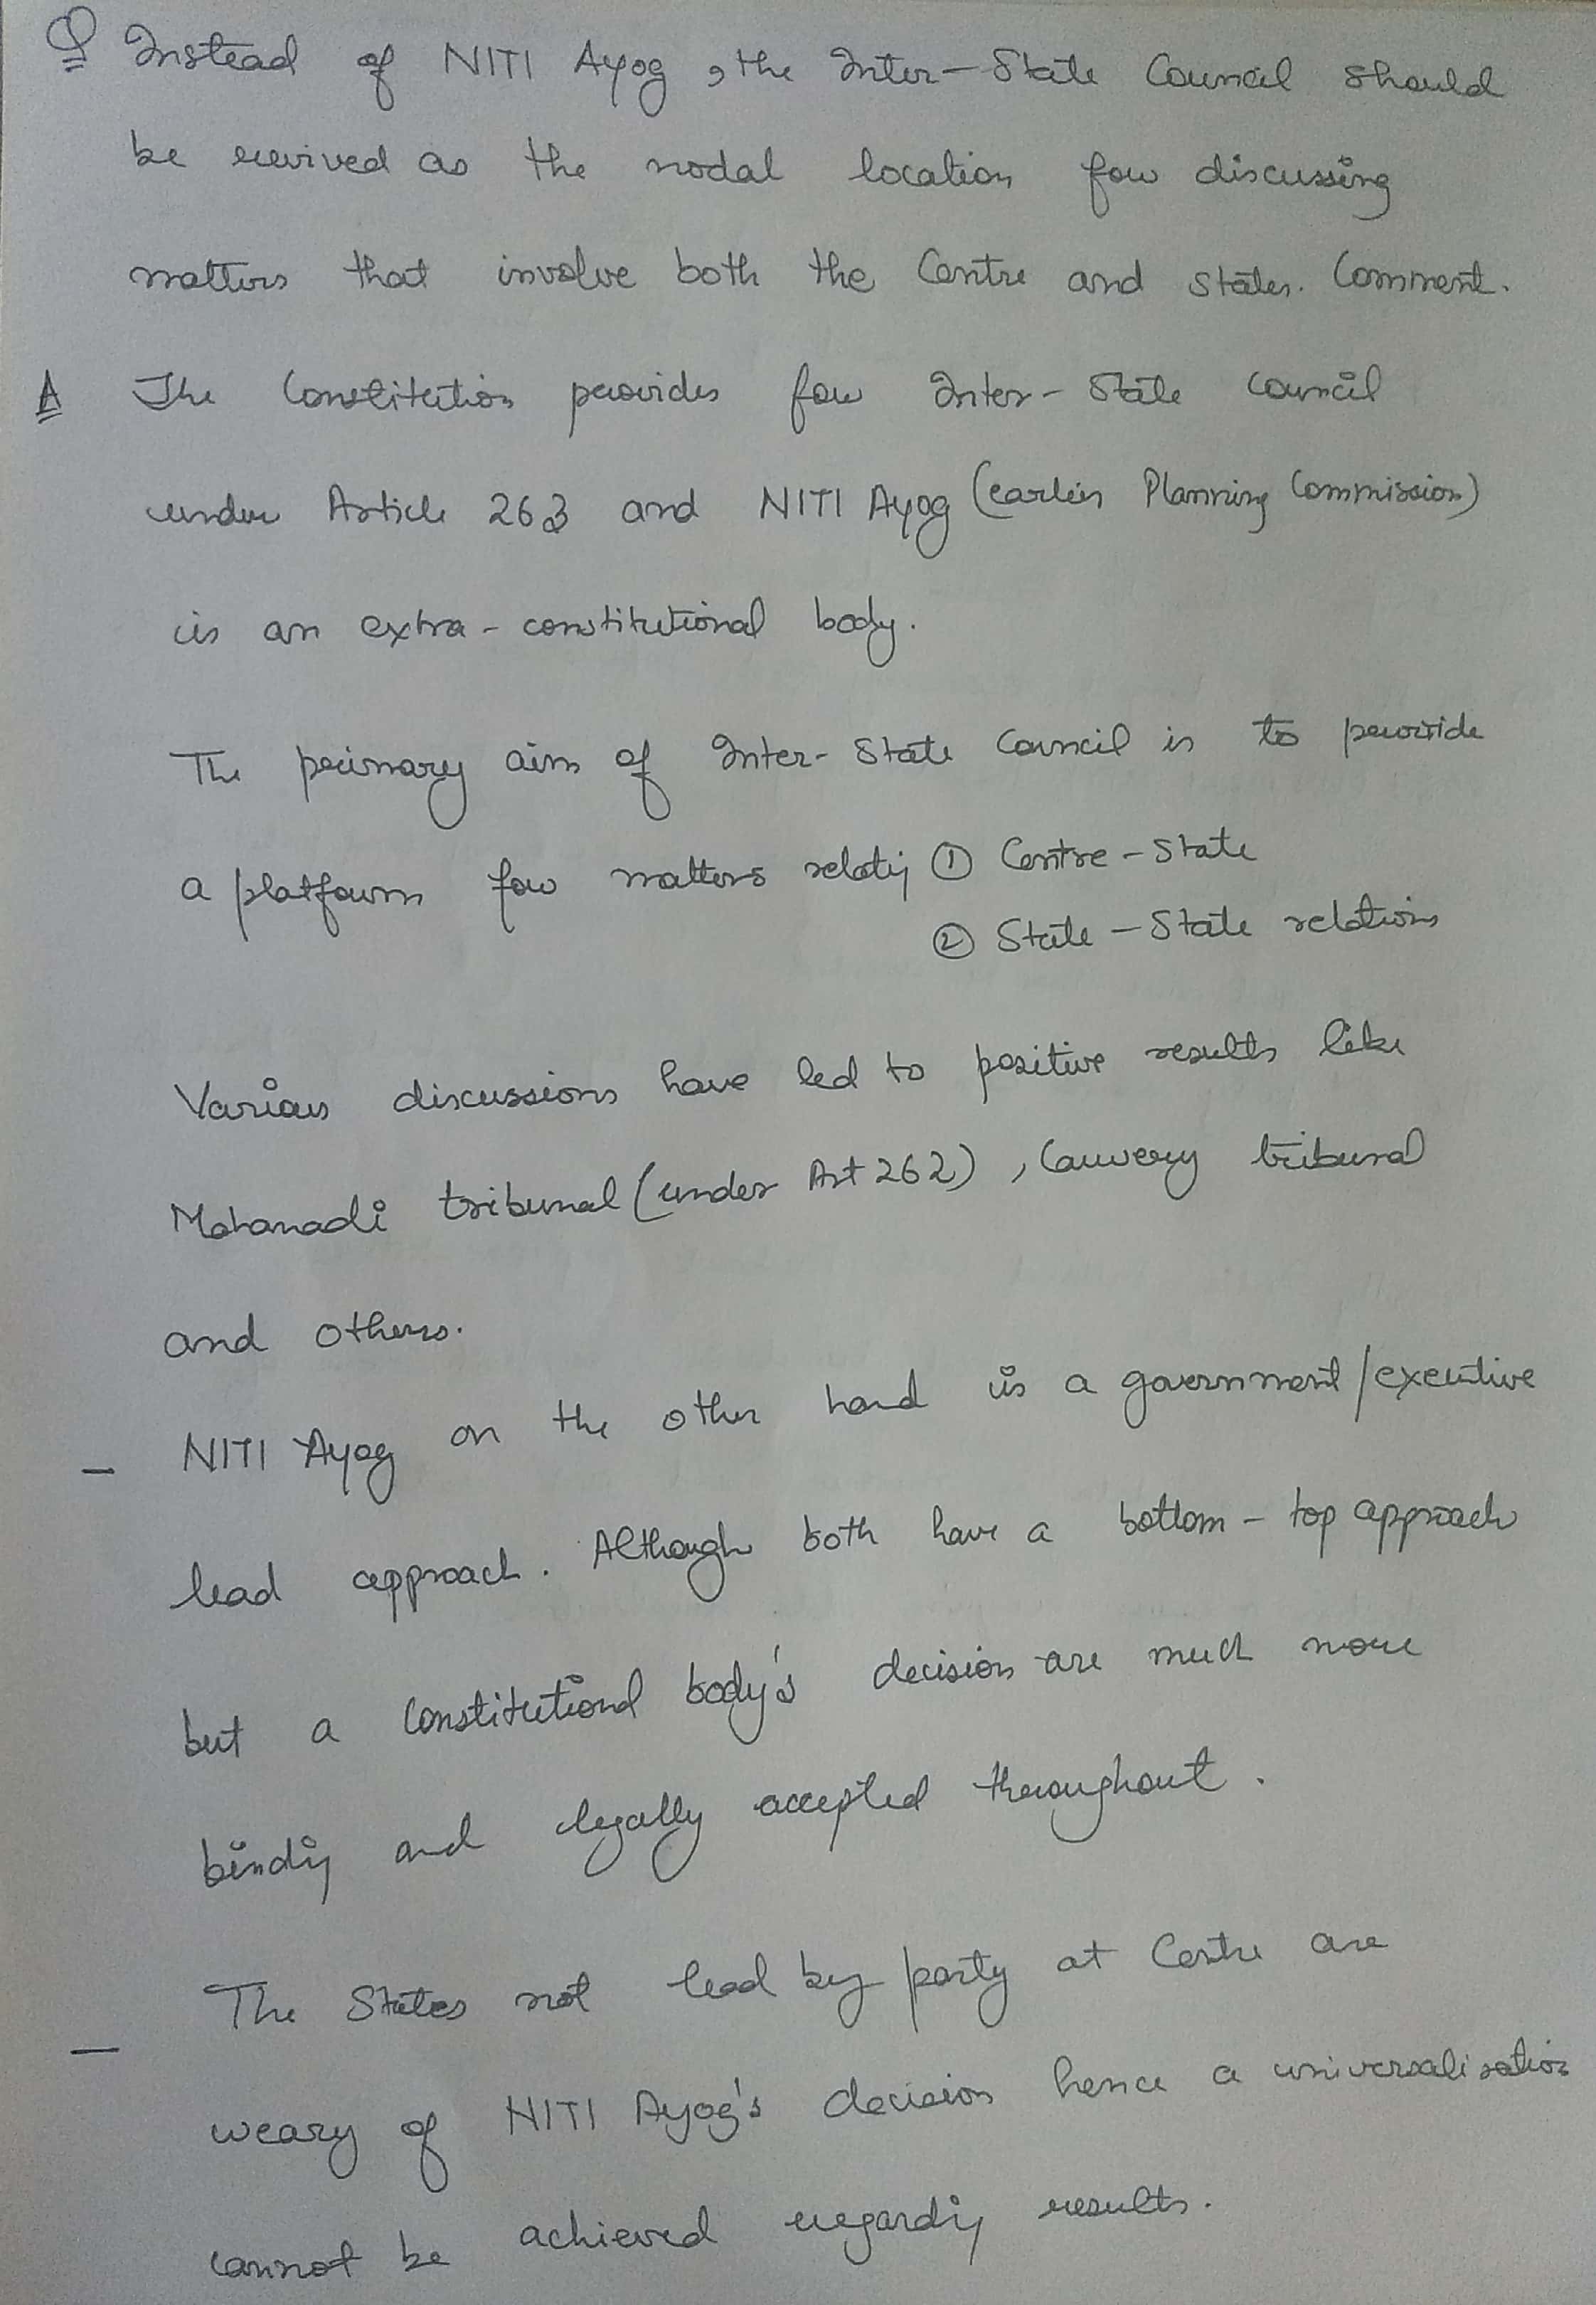 Q Instead of NITI Ayog, the Inter-State Council should
be revived as the nodal location for discussing
matters that involve both the Centre and states. Comment.
A The Constitution provides for Inter-State Council
under Article 263 and NITI Ayog (earlier Planning Commission)
is an extra-constitutional body.
The primary aim of Inter-State Council is to provide
a platform for matters relatig ① Centre-State
② State-State relations
Various discussions have led to positive results like
Mahanadi tribunal (under Art 262), Cauvery tribunal
and others.
- NITI Ayog on the other hand is a government/executive
lead approach. Although both have a bottom-top approach
but a Constitutional body's decision are much more
bindig and legally accepted throughout.
- The States not lead by party at Centre are
weary of NITI Ayog's decision hence a universalisation
cannot be achieved regardig results.